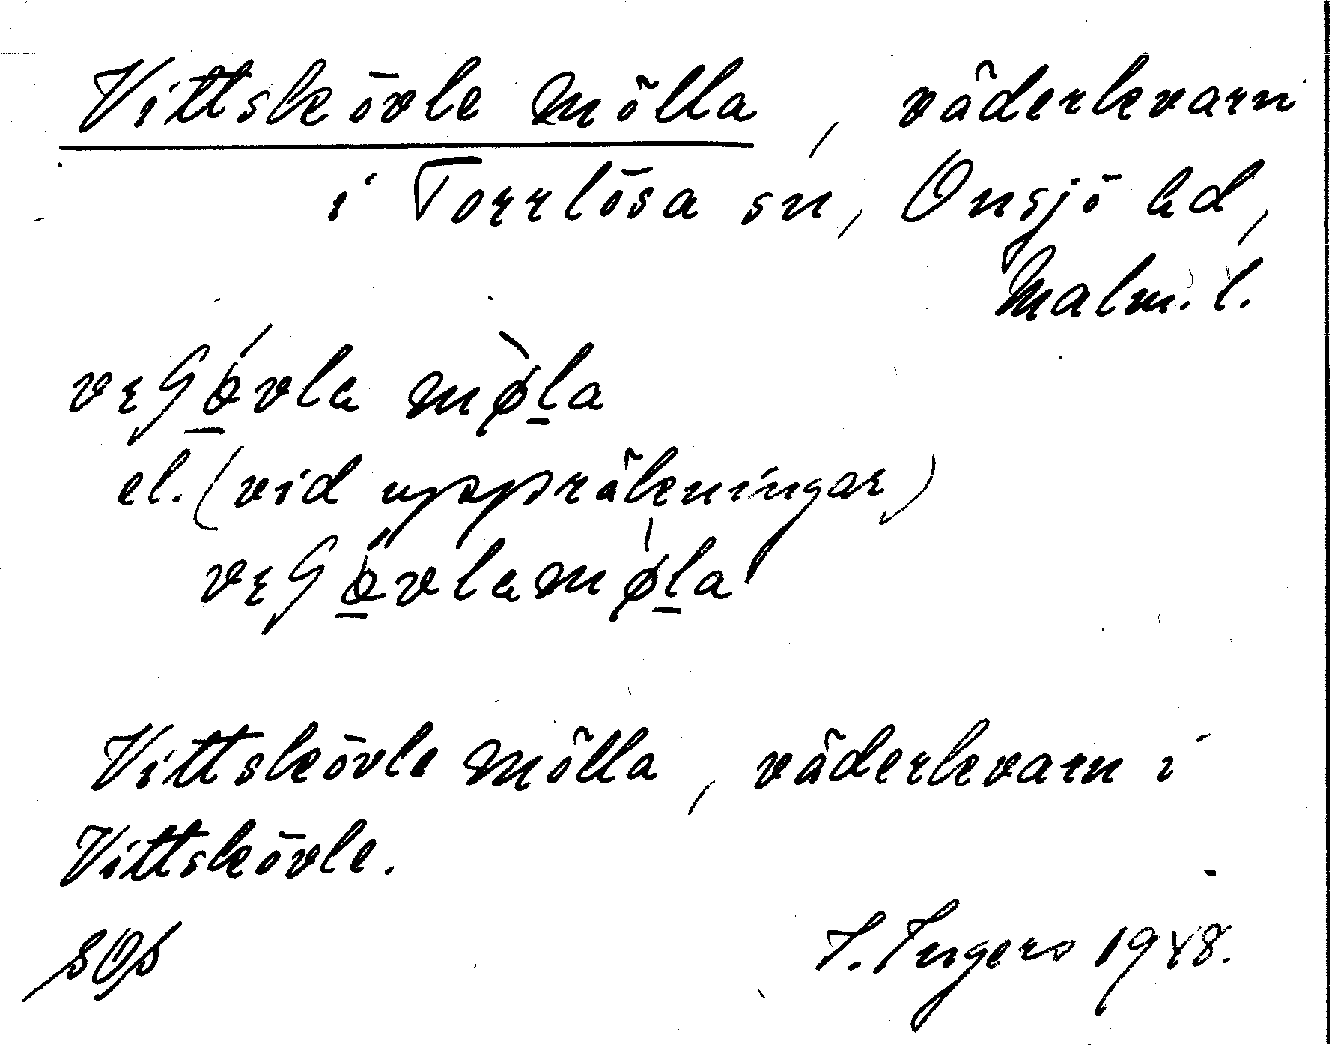 Vittskövle mölla, väderkvarn
i Torrlösa sn, Onsjö hd,
Malm. l.
el. (vid uppräkningar)
Vittskövle mölla, väderkvarn i
Vittskövle.
I. Ingers 1948.